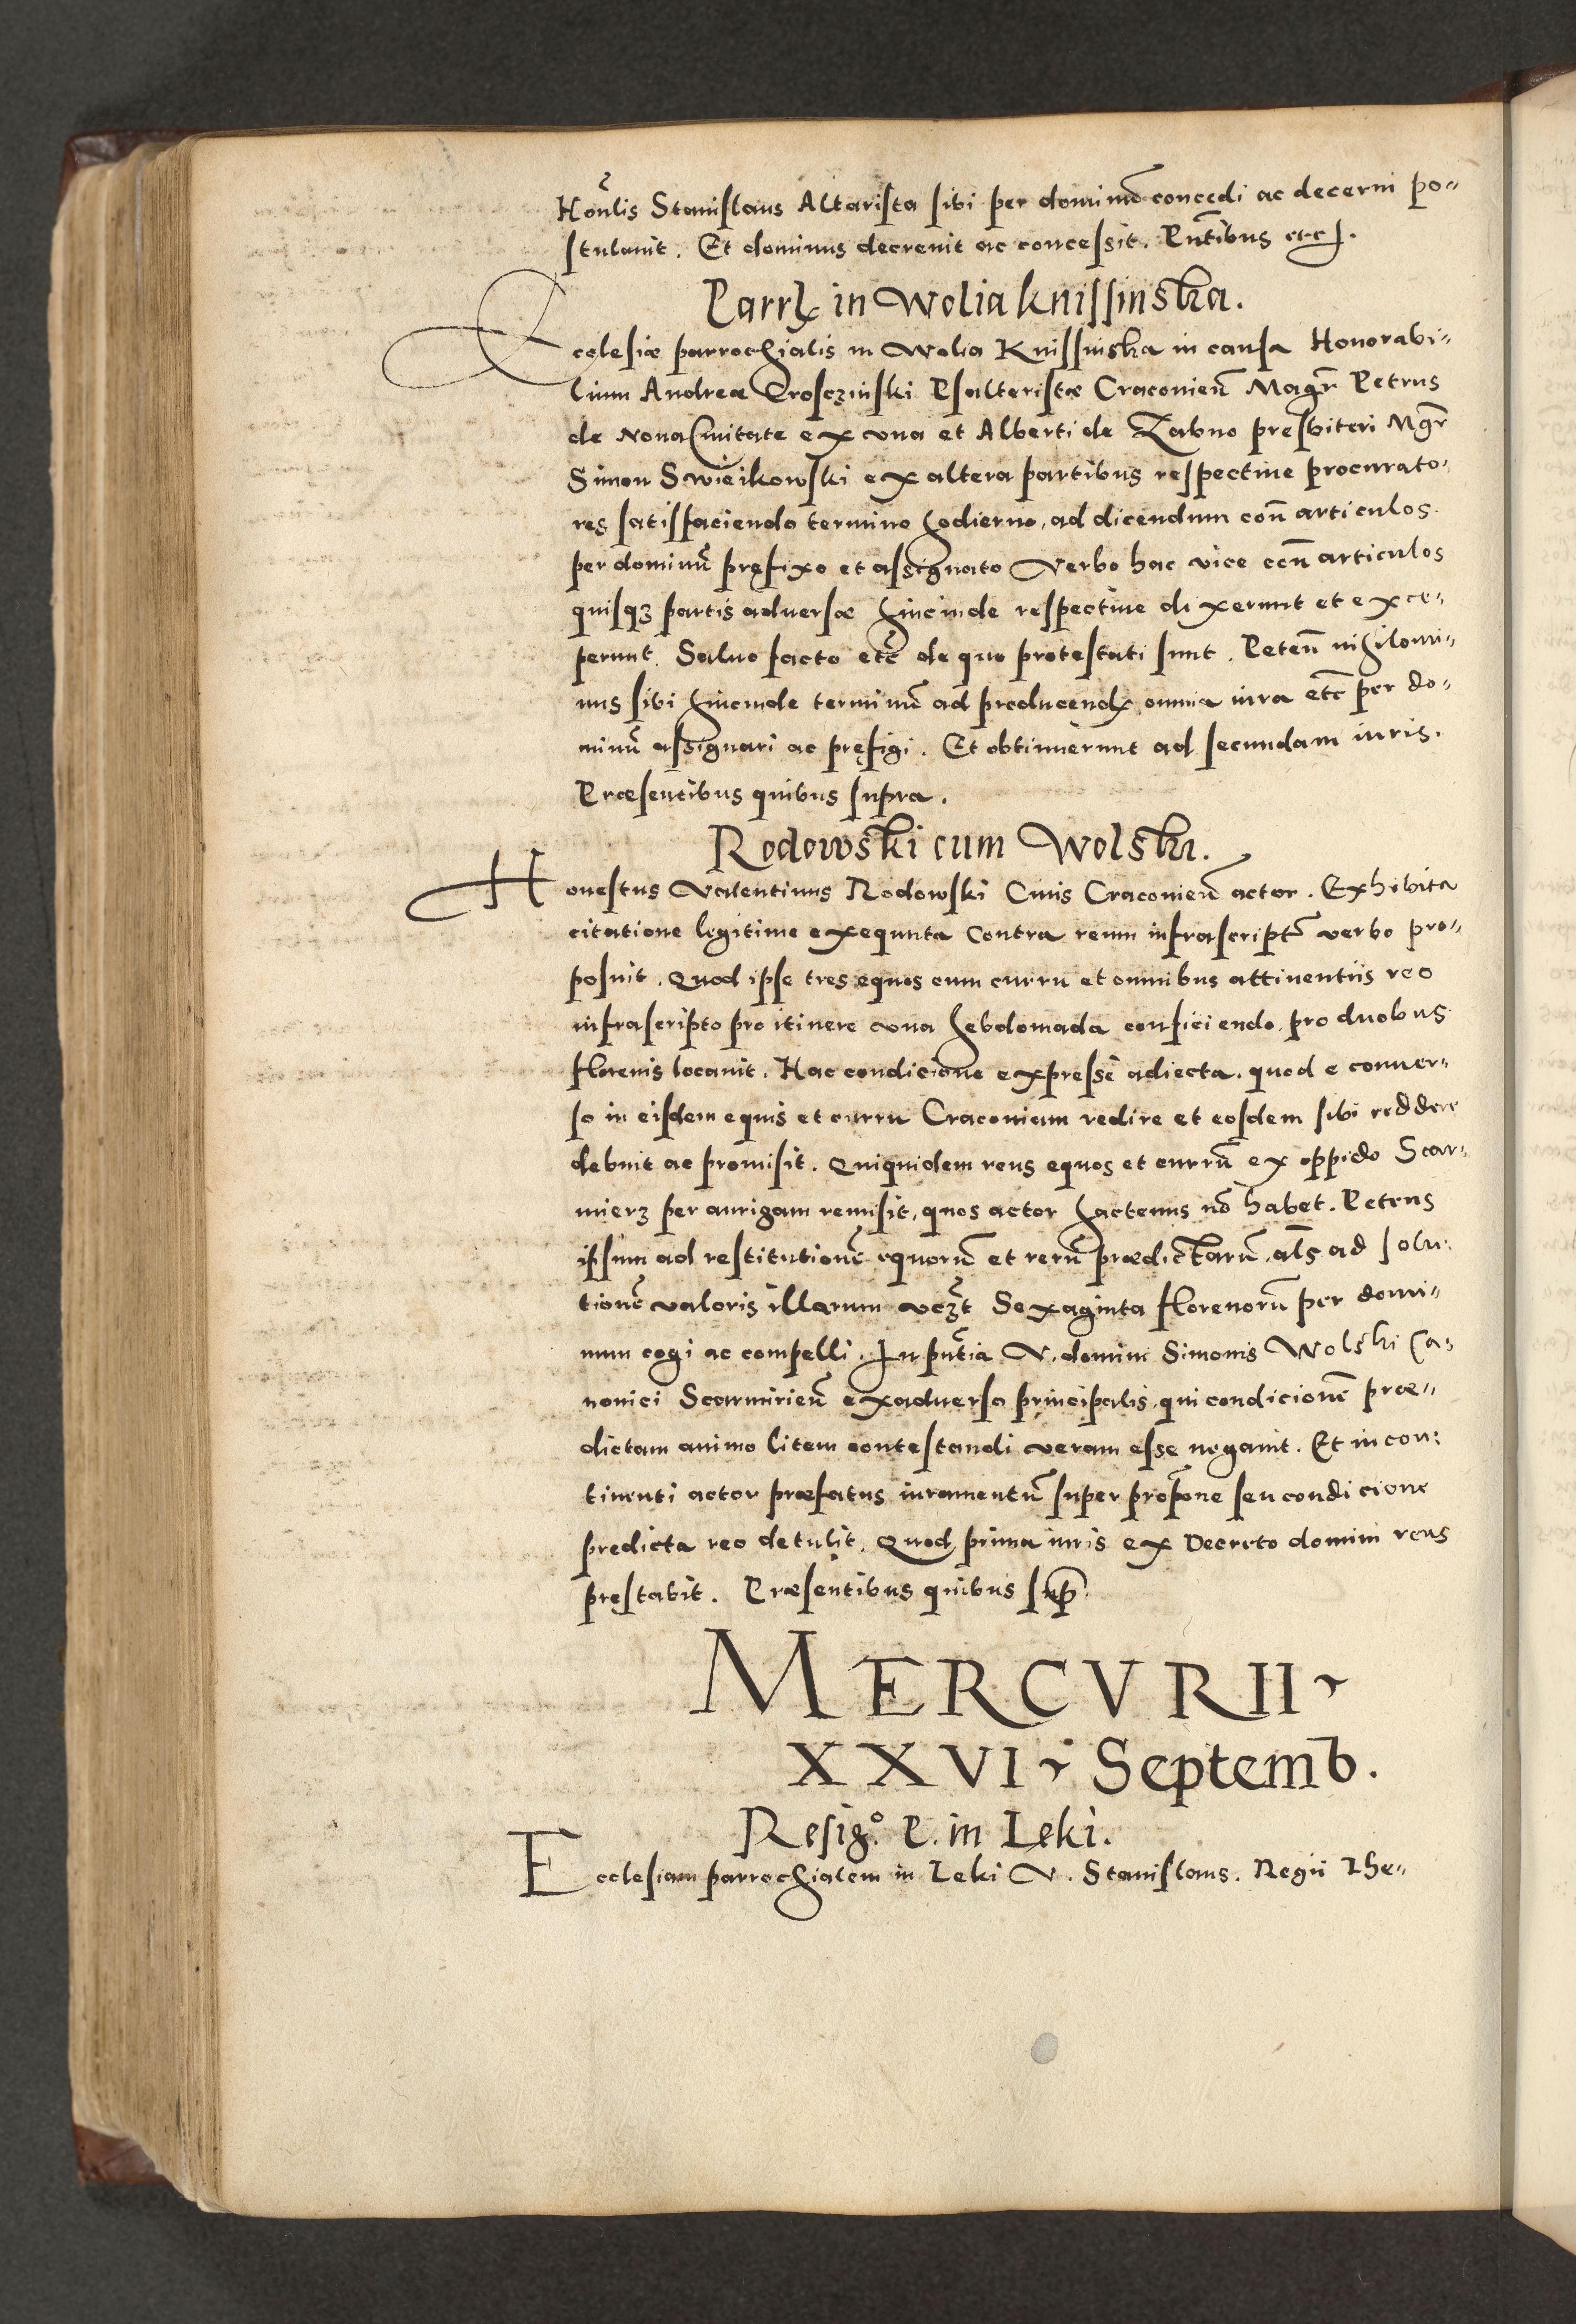 Honͦlis Stanislaus Altarista sibi per dominũ concedi ac decerni po-
stulauit. Et dominus decreuit ac concessit. Pntibus etc.
Parrҳ in Wolia Knissinska.
Ecclesiæ parrochialis in Wolia Knissinska in causa Honorabi-
lium Andreæ Crosczinski Psalteristæ Craconieñ Magr Petrus
de Noua Ciuitate ex vna et Alberti de Zabno presbiteri Mgr
Simon Swieikowski ex altera partibus respectiue procurato-
res satisfaciendo termino hodierno, ad dicendum con̄ articulos
per dominũ prefixo et assignato Verbo hac vice con̄ articulos
quisqȝ partis aduersæ hincinde respectiue dixerunt et exce-
perunt. Saluo facto etc̃ de quo protestati sunt. Peteñ nihilomi-
nus sibi hincinde terminũ ad producendҳ omnia iura etc̃ per do-
minũ assignari ac prefigi. Et obtinuerunt ad secundam iuris.
Præsentibus quibus supra.
Rodowski cum Wolski.
Honestus Valentinus Rodowski Ciuis Craconieñ actor. Exhibita
citatione legitime exequuta contra reum infrascriptũ verbo pro-
posuit. Quod ipse tres equos cum curru et omnibus attinentiis reo
infrascripto pro itinere vna hebdomada conficiendo, pro duobus
florenis locauit. Hac condicione expresse adiecta, quod e conuer-
so in eisdem equis et curru Craconiam redire et eosdem sibi reddere
debuit ac promisit. Quiquidem reus equos et currũ ex oppido Scar-
mierz per aurigam remisit, quos actor hactenus nõ habet. Petens
ipsum ad restitutionẽ equorũ et rerũ prædictarũ, als ad solu-
tionẽ valoris illarum vczt Sexaginta florenorũ per domi-
num cogi ac compelli. In pntia V. domini Simonis Wolski Ca-
nonici Scarmirieñ exaduerso principalis, qui condicionẽ præ-
dictam animo litem contestandi veram esse negauit. Et in con-
tinenti actor præfatus iuramentũ super propone seu condicione
predicta reo detulit. Quod prima iuris ex Decreto domini reus
prestabit. Præsentibus quibus sup̄.
MERCVRII
XXVI Septemb.
Resigº. P. in Leki.
Ecclesiam parrochialem in Leki V. Stanislaus. Regii The-